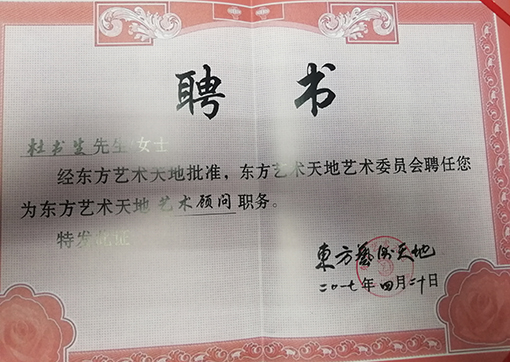 聘书
杜书生先生/女士
经东方艺术天地批准，东方艺术天地艺术委员会聘任您
为东方艺术天地艺术顾问职务。
特发此证
東方藝術天地
二〇一七年四月二十日